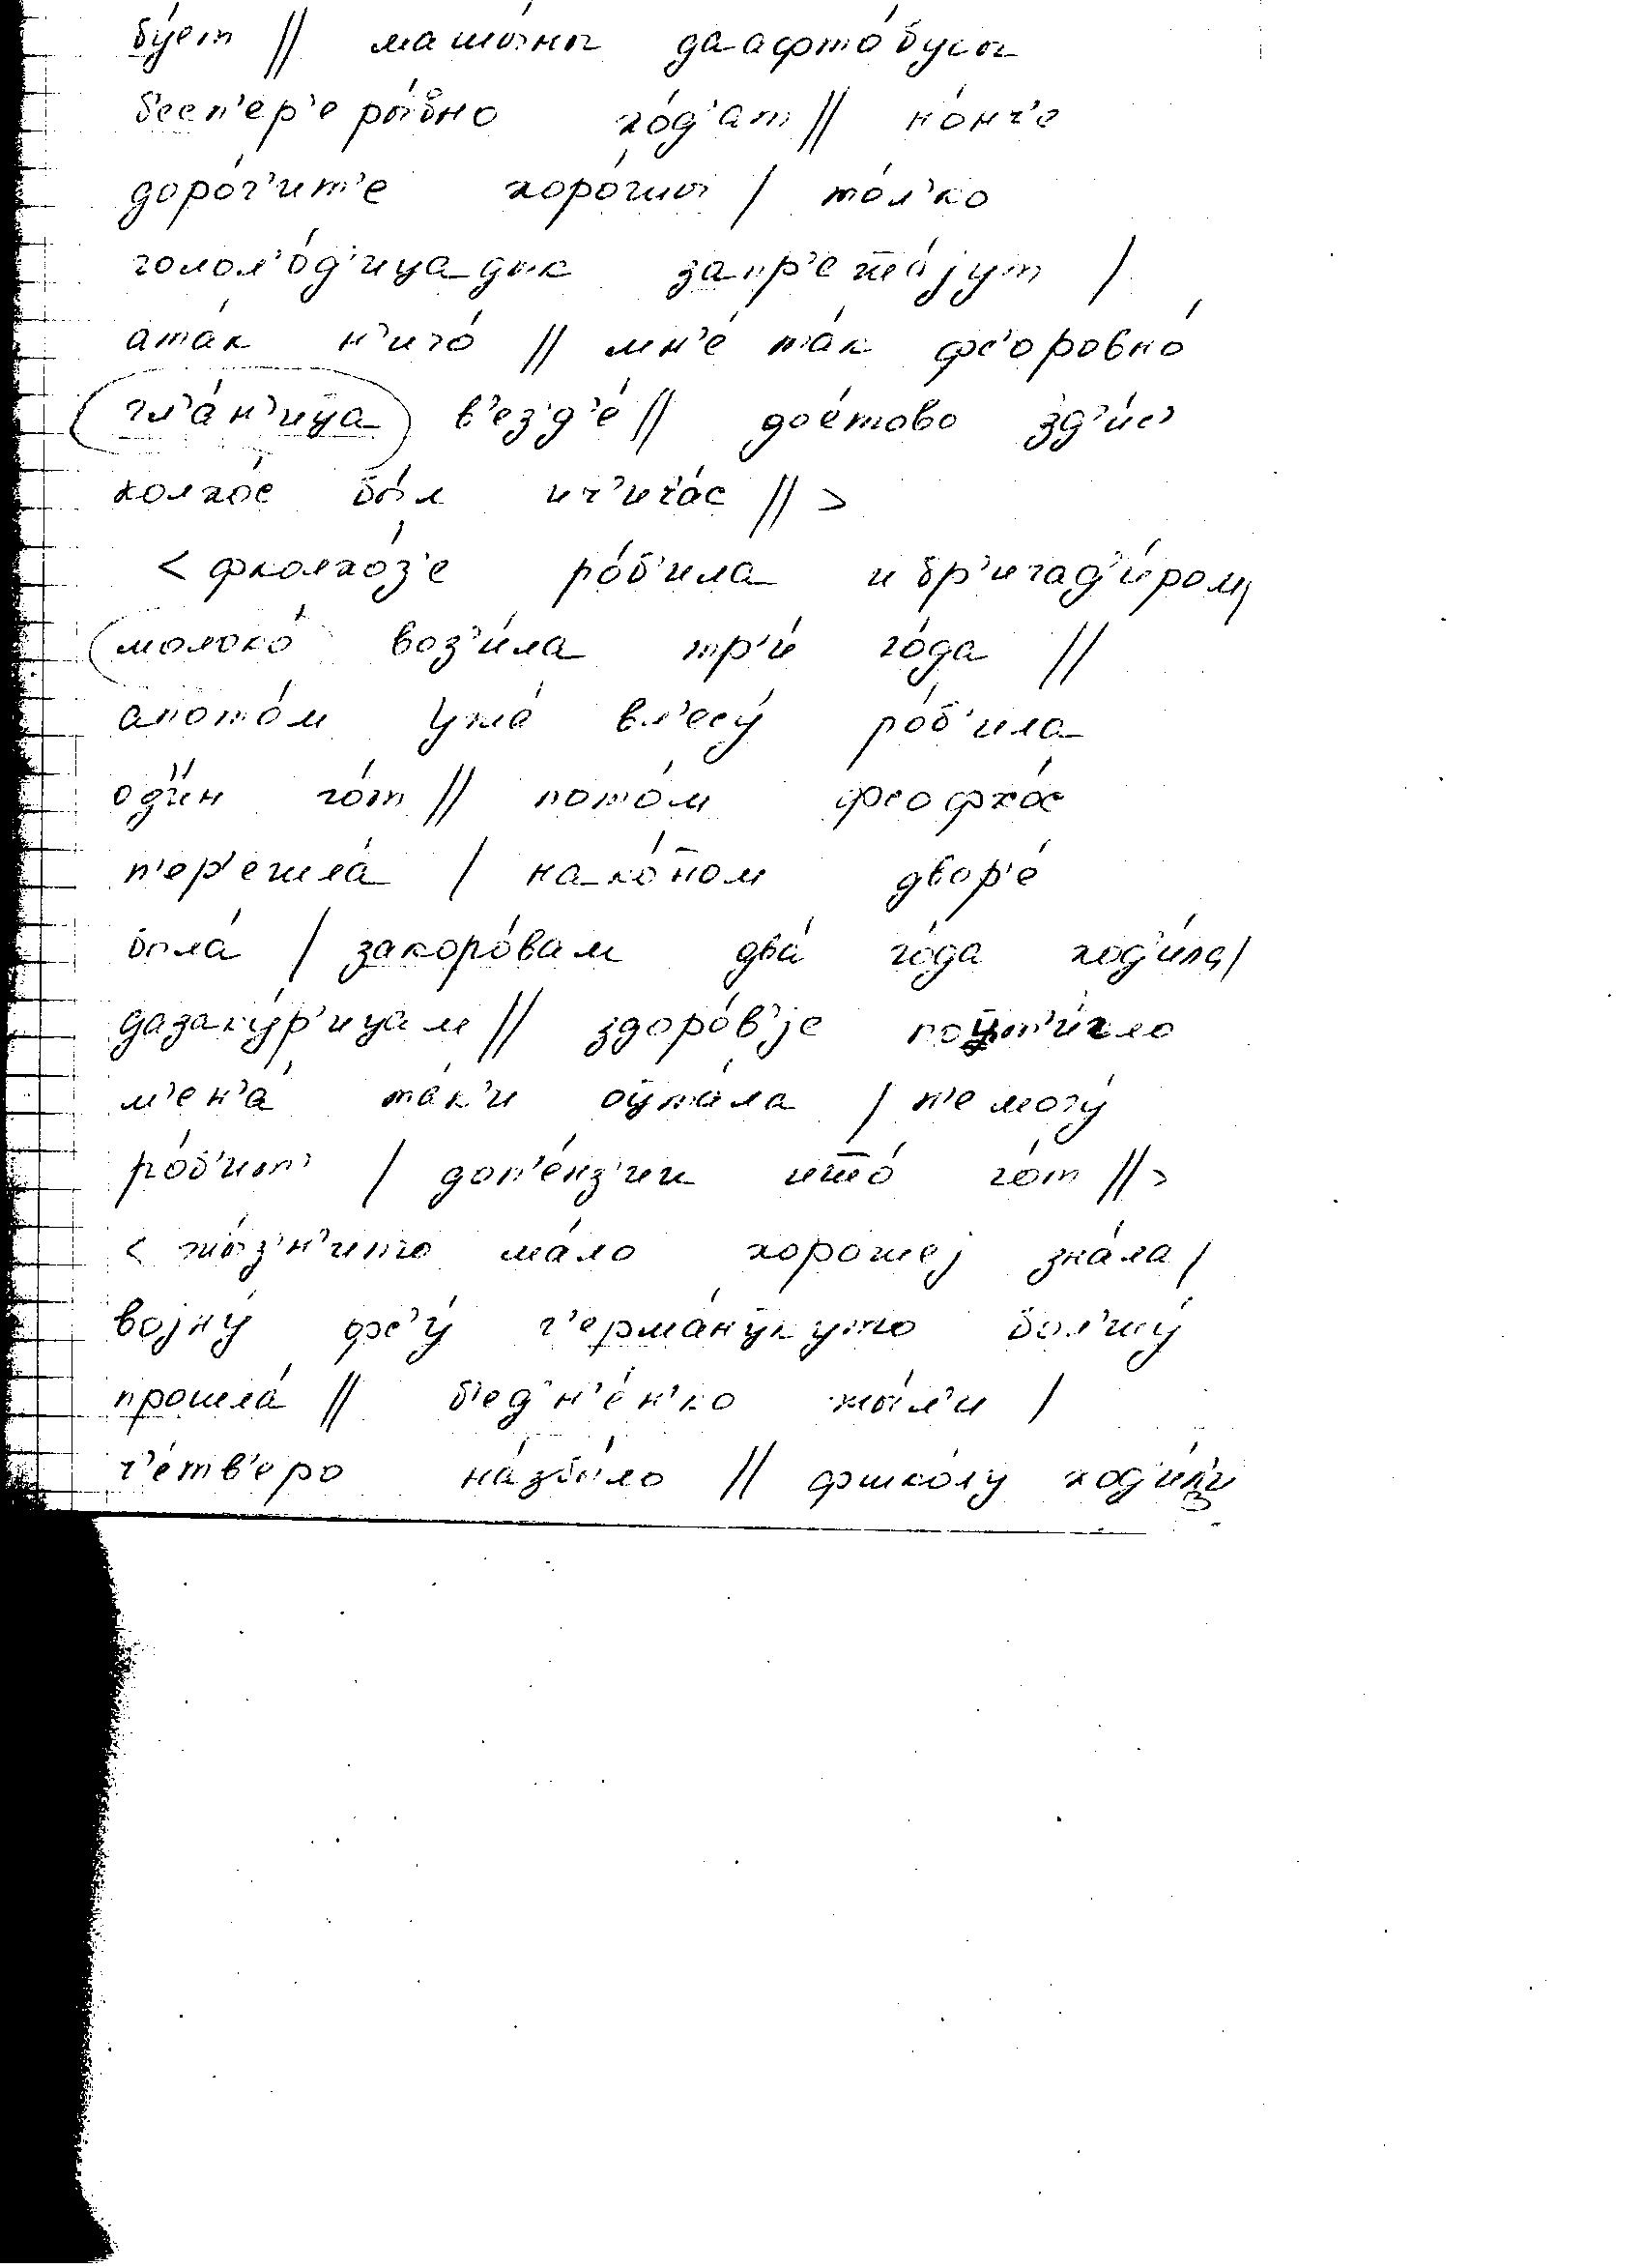 бу́ет // машы́ны даафто́бусы
бесп'ер'еры́вно хо́д'ат // но́нч'е
доро́г'ит'е хоро́шы / то́л'ко
голол'о́д'ица дык запр'ета́јут /
ата́к н'ичо́ // мн'е́ та́к фс'оровно́
гл'а́н'ица в'езд'е́ // доэ́тово зд'и́с'
колхо́с бы́л ич'ича́с // >
< фколхо́з'е ро́б'ила и бр'игад'и́ром,
молоко́ воз'и́ла тр'и́ го́да //
апото́м ужэ́ вл'есу́ ро́б'ила
од'и́н го́т // пото́м фсофхо́с
п'ер'ешла́ / нако́н̄ом двор'е́
была́ / закоро́вам два́ го́да ход'и́ла /
дазаку́р'ицам // здоро́в'је
м'ен'а́ та́к'и / н'емогу́
ро́б'ит' / доп'е́нз'ии го́т // >
< жы́з'н'ито ма́ло хорошеј зна́ла /
војну́ фс'у́ г'ерма́нц̄куто бол'шу́
прошла́ // б'едн'е́н'ко жы́л'и /
ч'е́тв'еро на́збы́ло // фшко́лу ход'и́л'и
3